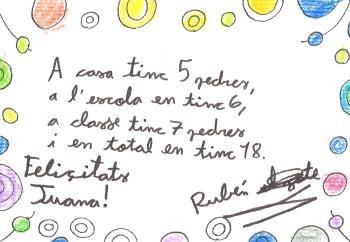 A casa tinc 5 pedres,
a l'escola en tinc 6,
a classe tinc 7 pedres
i en total en tinc 18.
Feliçitats
Juana!
Rubén